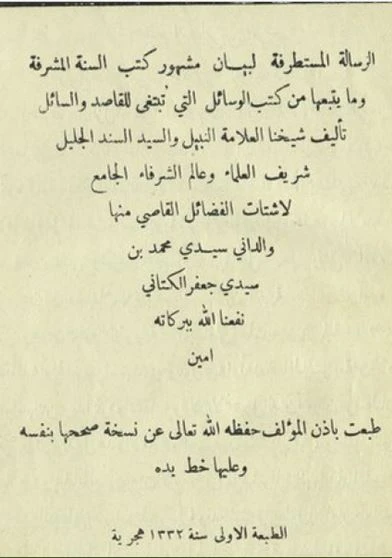 الرسالة المستطرفة لبيان مشهور كتب السنة المشرفة
وما يتبعها من كتب الوسائل التي تبتغى للقاصد والسائل
تأليف شيخنا العلامة النبيل والسيد السند الجليل
شريف العلماء وعالم الشرفاء الجامع
لاشتات الفضائل القاصي منها
والداني سيدي محمد بن
سيدي جعفر الكتاني
نفعنا الله ببركاته
امين
طبعت باذن المؤلف حفظه الله تعالى عن نسخة صححها بنفسه
وعليها خط يده
الطبعة الاولى سنة ١٣٣٢ هجرية